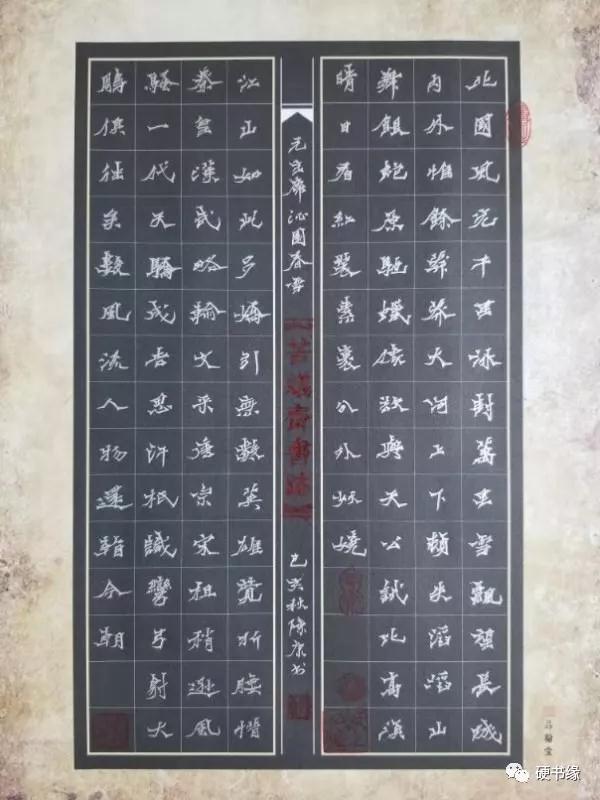 北國風光千里冰封萬里雪飄望長城
內外惟餘莽莽大河上下頓失滔滔山
舞銀蛇原馳蠟像欲與天公試比高須
晴日看紅裝素裹分外妖嬈
毛主席 沁園春雪
己亥秋陳康书
江山如此多嬌引無數英雄競折腰惜
秦皇漢武略輸文采唐宗宋祖稍遜風
騷一代天驕成吉思汗祇識彎弓射大
鵰俱往矣數風流人物還看今朝
品翰堂
硬书缘